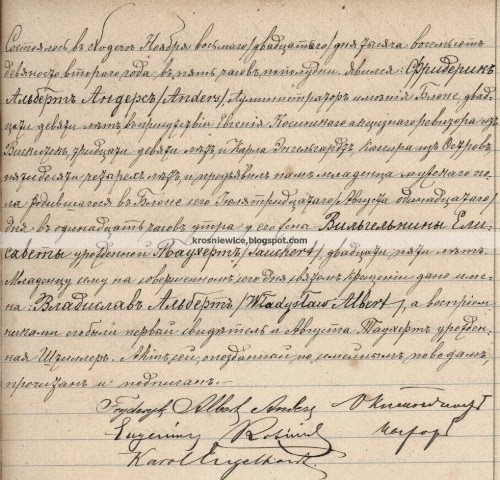 Состоялось въ Кроснѣ Ноября восьмаго /двадцатаго/ дня тысяча восемьсотъ
девяносто втораго года, въ пять часовъ пополудни. Явился: Фридерикъ
Альбертъ Андерсъ /Anders/, Администраторъ имѣнія Блоне, двад-
цати девяти лѣтъ, въ присутствіи Евгенія Косинскаго акцизнаго ревизора изъ
тридцати девяти лѣтъ и Карла Энгельгардъ, кассира изъ Островъ
пятидесяти четырехъ лѣтъ, и предъявилъ намъ младенца мужскаго по-
ла, родившагося въ Блоне сего Іюля тридцатаго /Августа одинадцатаго/
дня въ одинадцать часовъ утра у его жены Вильгельмины Ели-
саветы урожденной Таухертъ /Tauchert/, двадцати пяти лѣтъ.
krosniewice.blogspot.com
Младенцу сему на совершенномъ сего дня святомъ крещеніи дано име-
на Владиславъ Альбертъ /Władysław Albert/, а воспріем-
никами его были первый свидѣтель и Августа Таухертъ урожден-
ная Шиллеръ. Актъ сей, опозданный по семейнымъ поводамъ,
прочитанъ и подписанъ.
Fryderyk Albert Anders
Eugeniusz
Karol Engelhardt.